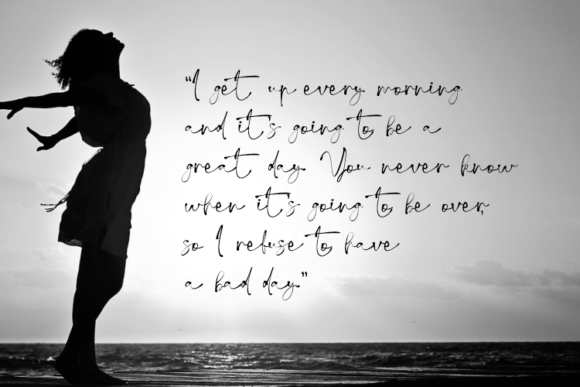 "I get up every morning
and it's going to be a
great day. You never know
when it's going to be over,
so I refuse to have
a bad day."